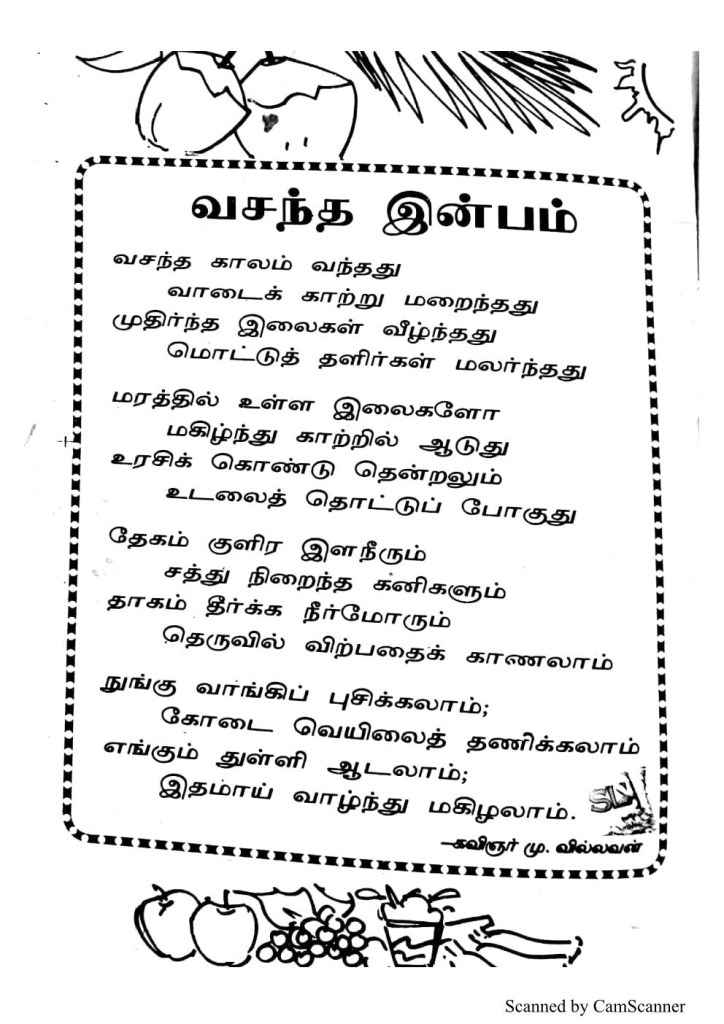 வசந்த இன்பம்
வசந்த காலம் வந்தது
வாடைக் காற்று மறைந்தது
முதிர்ந்த இலைகள் வீழ்ந்தது
மொட்டுத் தளிர்கள் மலர்ந்தது
மரத்தில் உள்ள இலைகளோ
மகிழ்ந்து காற்றில் ஆடுது
உரசிக் கொண்டு தென்றலும்
உடலைத் தொட்டுப் போகுது
தேகம் குளிர இளநீரும்
சத்து நிறைந்த கனிகளும்
தாகம் தீர்க்க நீர்மோரும்
தெருவில் விற்பதைக் காணலாம்
நுங்கு வாங்கிப் புசிக்கலாம்;
கோடை வெயிலைத் தணிக்கலாம்
எங்கும் துள்ளி ஆடலாம்;
இதமாய் வாழ்ந்து மகிழலாம்.
–கவிஞர் மு. வில்லவன்
Scanned by CamScanner